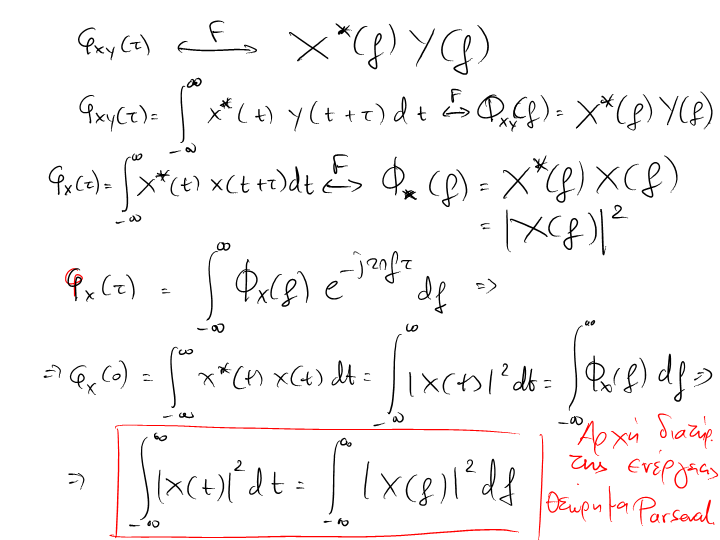 φ_xy(τ) ⟷^F X*(f) Y(f)
φ_xy(τ) = ∫_{-∞}^{∞} x*(t) y(t+τ) dt ⟷^F Φ_xy(f) = X*(f) Y(f)
φ_x(τ) = ∫_{-∞}^{∞} x*(t) x(t+τ) dt ⟷^F Φ_x(f) = X*(f) X(f)
= |X(f)|²
φ_x(τ) = ∫_{-∞}^{∞} Φ_x(f) e^{-j2πfτ} df =>
=> φ_x(0) = ∫_{-∞}^{∞} x*(t) x(t) dt = ∫_{-∞}^{∞} |x(t)|² dt = ∫_{-∞}^{∞} Φ_x(f) df =>
=> ∫_{-∞}^{∞} |x(t)|² dt = ∫_{-∞}^{∞} |X(f)|² df
Αρχή διατήρ.
της ενέργειας
Θεώρημα Parseval